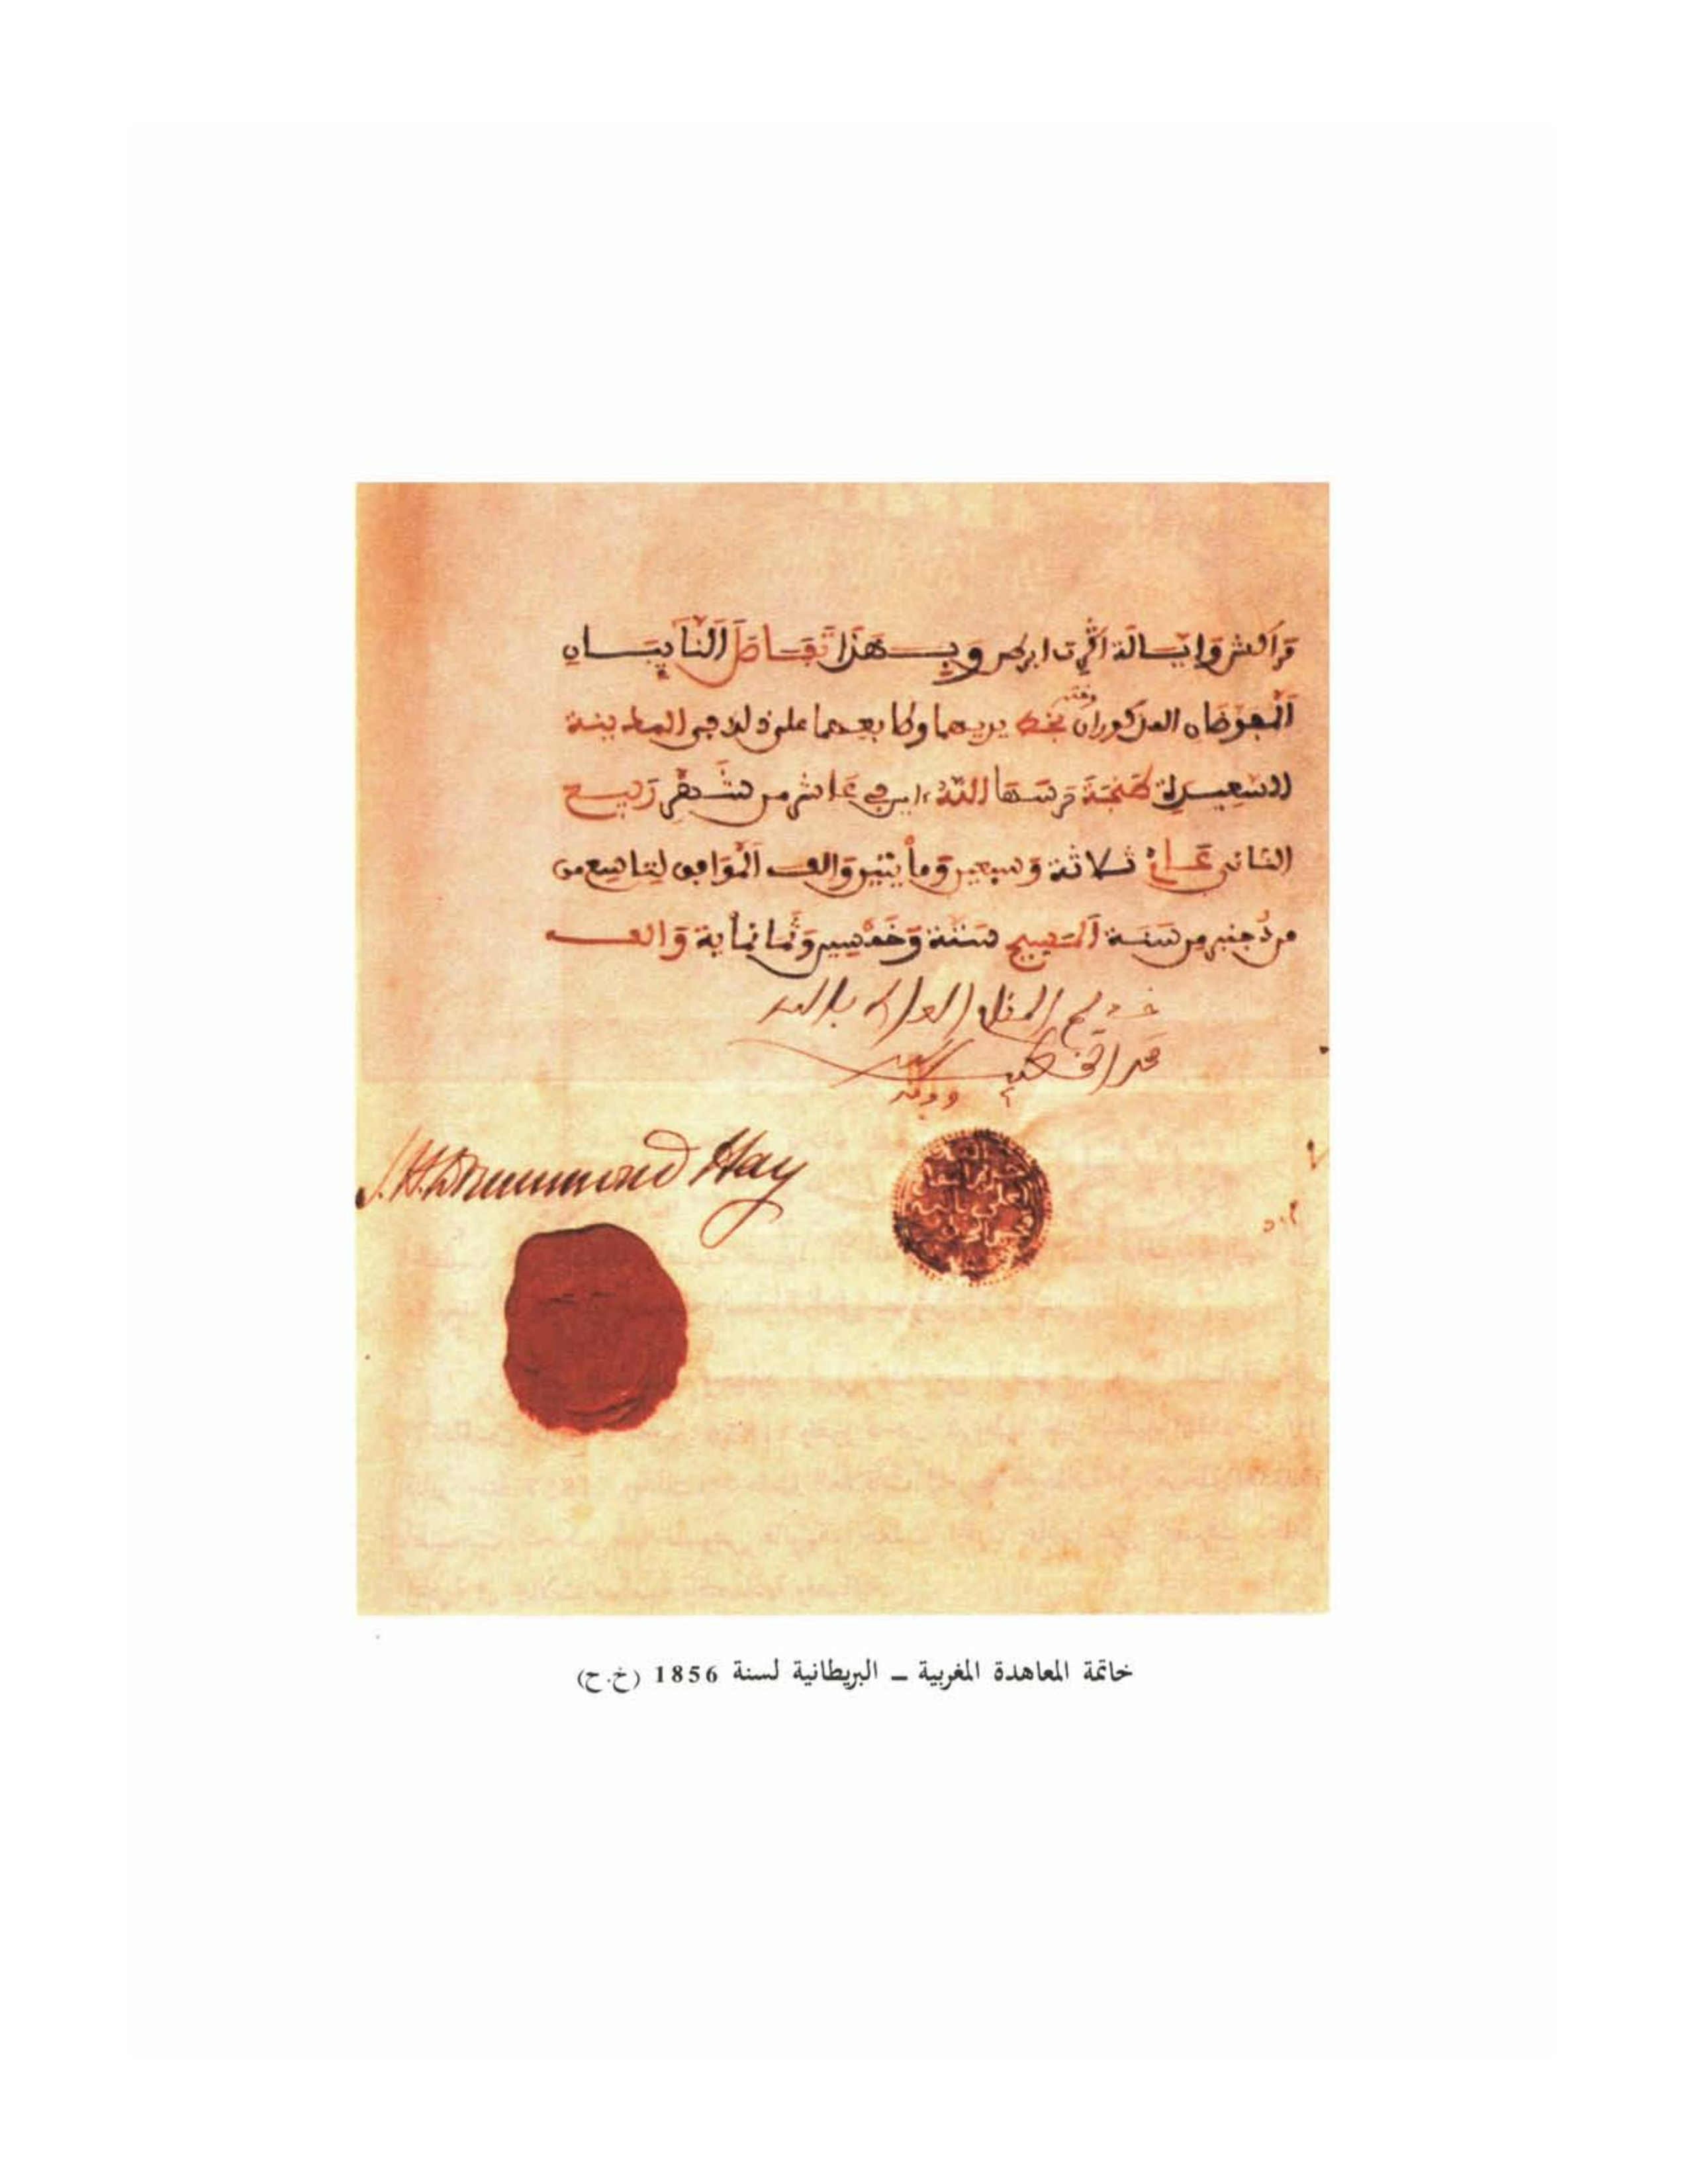 مراكش وايالة اكرت ابريطن وبهذا تقاطَّ النَّايِبَان
المفوضان المذكوران وختم بخط يديهما وطابعهما على ذلك في المدينة
السعيدة طنجة حرسها الله امين في عاشر من شهر ربيع
الثاني عام ثلاثة وسبعين ومأيتين والف الموافق لتاسع من
من دجنبر من سنة المسيح ستة وخمسين وثمانماية والف
خديم المقام العالي بالله
محمد الخطيب
وفقه
J. H. Drummond Hay
خاتمة المعاهدة المغربية ــ البريطانية لسنة 1856 (خ.ح)